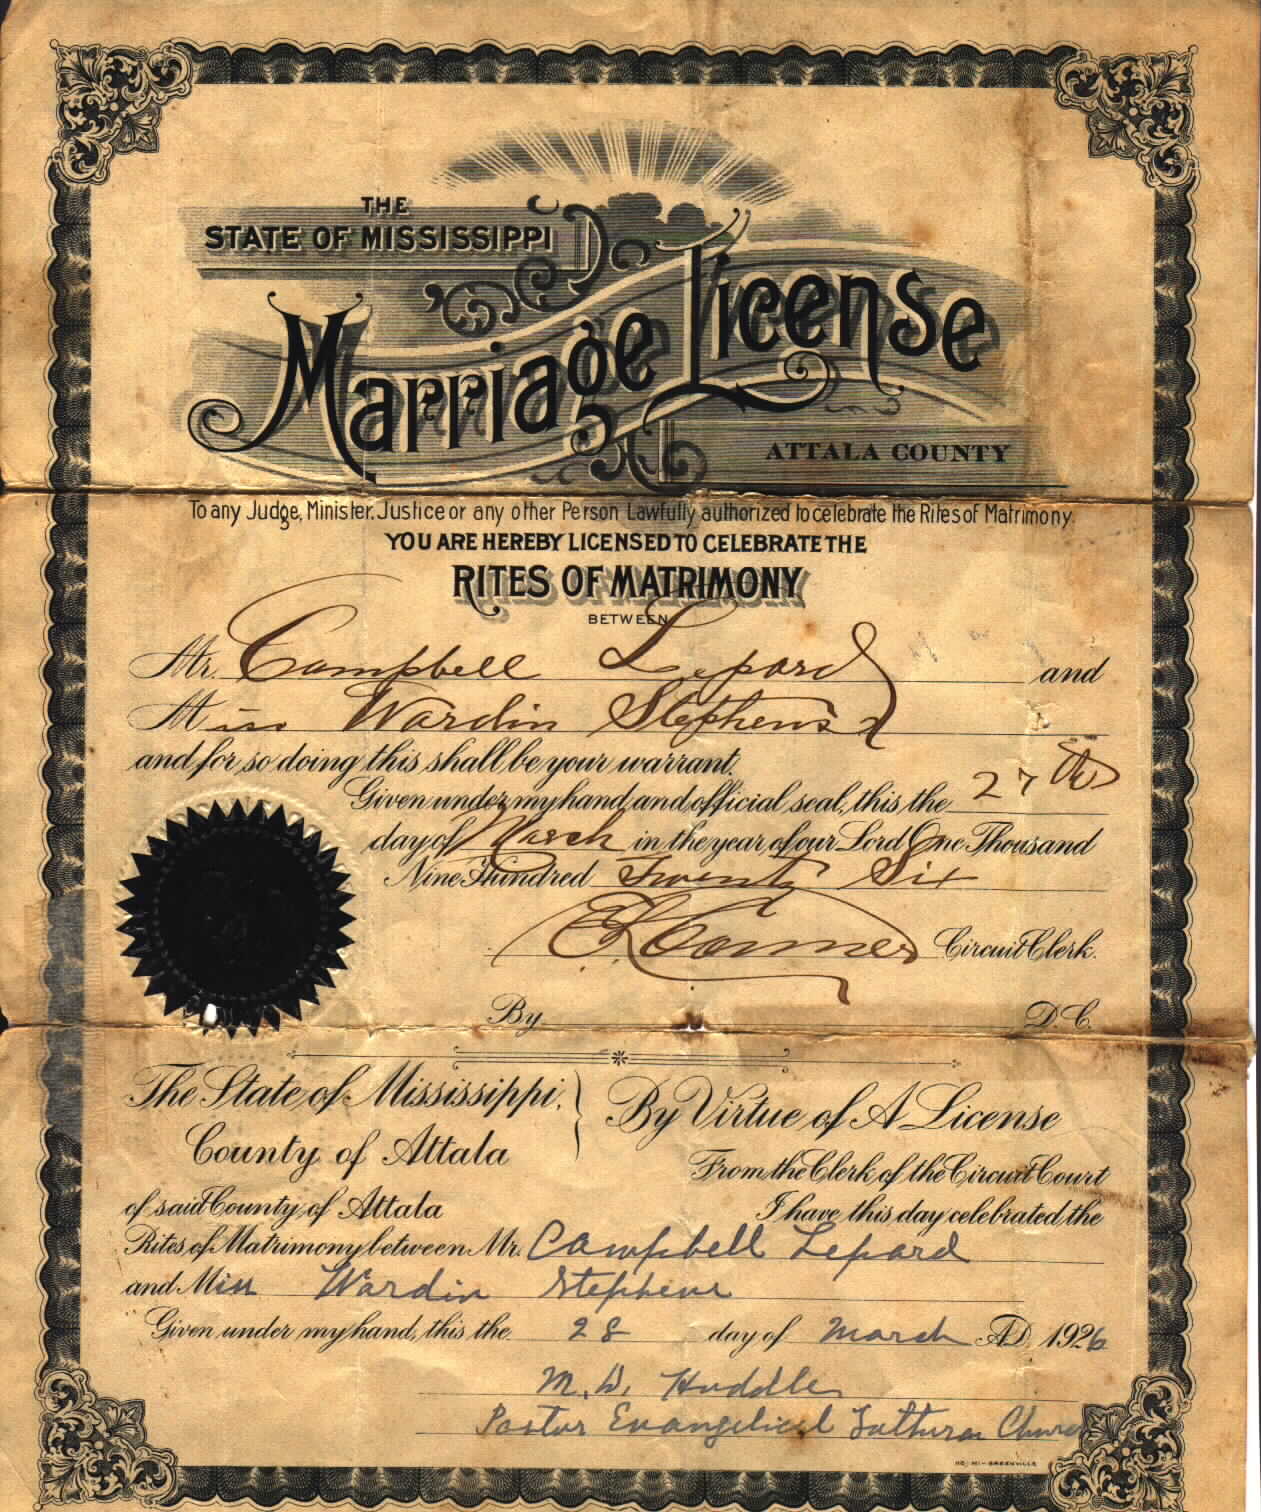 THE
STATE OF MISSISSIPPI
Marriage License
ATTALA COUNTY
To any Judge, Minister, Justice or any other Person Lawfully authorized to celebrate the Rites of Matrimony.
YOU ARE HEREBY LICENSED TO CELEBRATE THE
RITES OF MATRIMONY
BETWEEN
Mr. Campbell Lepard and
Miss Wardin Stephens
and for so doing this shall be your warrant.
Given under my hand and official seal, this the 27th
day of March in the year of our Lord One Thousand
Nine Hundred Twenty Six
Circuit Clerk.
By D. C.
The State of Mississippi,
County of Attala
By Virtue of A License
From the Clerk of the Circuit Court
of said County of Attala I have this day celebrated the
Rites of Matrimony between Mr. Campbell Lepard
and Miss Wardin Stephens
Given under my hand, this the 28 day of March A.D. 1926
M. D. Huddle
Pastor Evangelical Lutheran Church